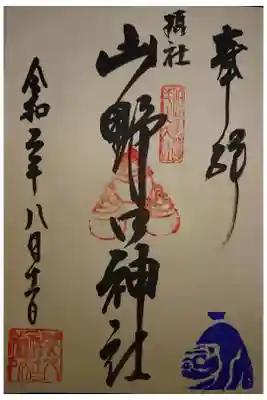 奉拝
摂社
山野口神社
令和元年八月十一日